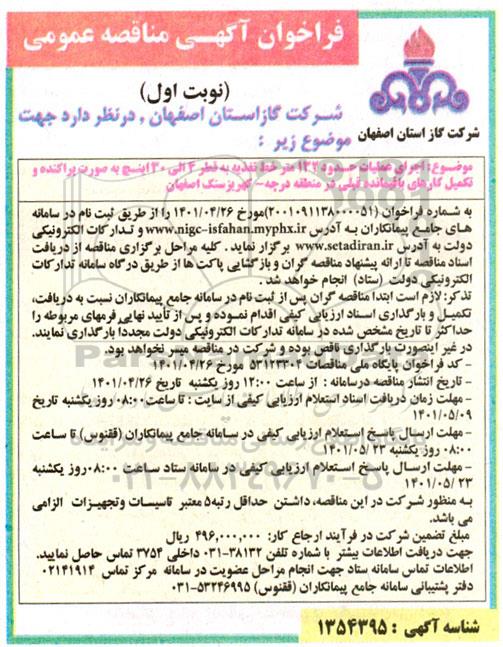 فراخوان آگهی مناقصه عمومی
(نوبت اول)
شرکت گاز استان اصفهان , درنظر دارد جهت
موضوع زیر :
شرکت گاز استان اصفهان
موضوع: اجرای عملیات حدود ۱۳۲ متر خط تغذیه به قطر ۴ الی ۳۰ اینچ به صورت پراکنده و
تکمیل کارهای باقیمانده قبلی در منطقه درچه- کهریزسنگ اصفهان
به شماره فراخوان (۲۰۰۱۰۹۱۱۳۸۰۰۰۰۵۱)مورخ ۱۴۰۱/۰۴/۲۶ را از طریق ثبت نام در سامانه
های جامع پیمانکاران به آدرس www.nigc-isfahan.myphx.ir و تدارکات الکترونیکی
دولت به آدرس www.setadiran.ir برگزار نماید . کلیه مراحل برگزاری مناقصه از دریافت
اسناد مناقصه تا ارائه پیشنهاد مناقصه گران و بازگشایی پاکت ها از طریق درگاه سامانه تدارکات
الکترونیکی دولت (ستاد) انجام خواهد شد .
تذکر: لازم است ابتدا مناقصه گران پس از ثبت نام در سامانه جامع پیمانکاران نسبت به دریافت،
تکمیل و بارگذاری اسناد ارزیابی کیفی اقدام نموده و پس از تأیید نهایی فرمهای مربوطه را
حداکثر تا تاریخ مشخص شده در سامانه تدارکات الکترونیکی دولت مجددا بارگذاری نمایند.
در غیر اینصورت بارگذاری ناقص بوده و شرکت در مناقصه میسر نخواهد بود.
- کد فراخوان پایگاه ملی مناقصات ۵۳۱۲۳۳۰۲ مورخ ۱۴۰۱/۰۴/۲۶
- تاریخ انتشار مناقصه درسامانه : از ساعت ۱۲:۰۰ روز یکشنبه تاریخ ۱۴۰۱/۰۴/۲۶
- مهلت زمان دریافت اسناد استعلام ارزیابی کیفی از سایت : تا ساعت۰۸:۰۰ روز یکشنبه تاریخ
۱۴۰۱/۰۵/۰۹
- مهلت ارسال پاسخ استعلام ارزیابی کیفی در سامانه جامع پیمانکاران (ققنوس) تا ساعت
۰۸:۰۰ روز یکشنبه ۱۴۰۱/۰۵/۲۳
- مهلت ارسال پاسخ استعلام ارزیابی کیفی در سامانه ستاد ساعت ۰۸:۰۰ روز یکشنبه
۱۴۰۱/۰۵/۲۳
به منظور شرکت در این مناقصه، داشتن حداقل رتبه۵ معتبر تاسیسات وتجهیزات الزامی
می باشد.
مبلغ تضمین شرکت در فرآیند ارجاع کار: ۴۹۶,۰۰۰,۰۰۰ ریال
جهت دریافت اطلاعات بیشتر با شماره تلفن ۳۸۱۳۲-۰۳۱ داخلی ۳۷۵۴ تماس حاصل نمایید.
اطلاعات تماس سامانه ستاد جهت انجام مراحل عضویت در سامانه مرکز تماس ۰۲۱۴۱۹۱۴
دفتر پشتیبانی سامانه جامع پیمانکاران (ققنوس) ۵۳۲۴۶۹۹۵-۰۳۱
شناسه آگهی : ۱۳۵۴۳۹۵
۰۲۱-۸۸۳۴۹۶۷۰-۵